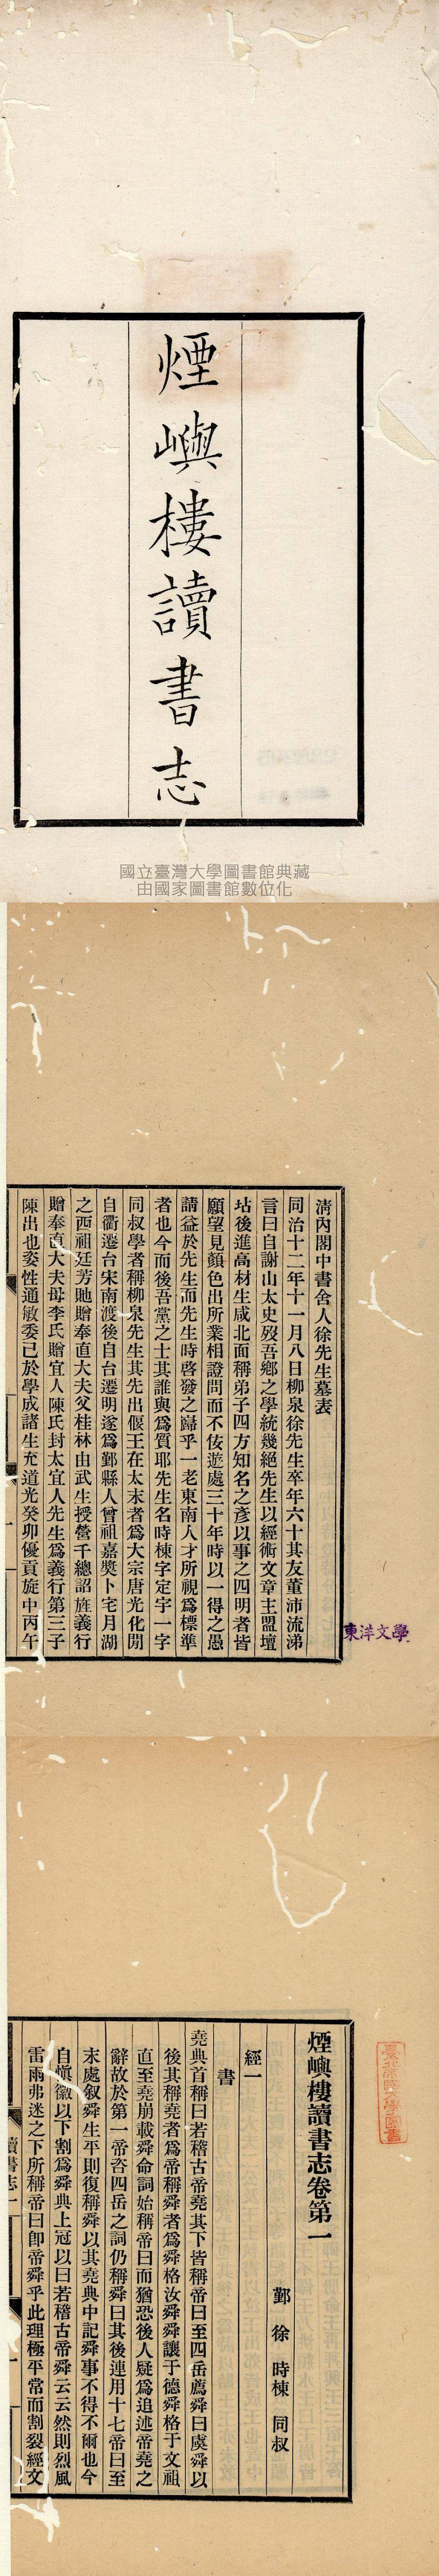 煙嶼樓讀書志
國立臺灣大學圖書館典藏
由國家圖書館數位化
清內閣中書舍人徐先生墓表
同治十二年十一月八日柳泉徐先生卒年六十其友董沛流涕
言曰自謝山太史歿吾鄉之學統幾絕先生以經術文章主盟壇
坫後進高材生咸北面稱弟子四方知名之彥以事之四明者皆
願望見顏色出所業相證問而不佞遊處三十年時以一得之愚
請益於先生而先生時啓發之歸乎一老東南人才所視為標準
者也今而後吾黨之士其誰與為質耶先生名時棟字定宇一字
同叔學者稱柳泉先生其先出偃王在太末者為大宗唐光化閒
自衢遷台宋南渡後自台遷明遂為鄞縣人曾祖嘉獎卜宅月湖
之西祖廷芳貤贈奉直大夫父桂林由武生授營千總詔旌義行
贈奉直大夫母李氏贈宜人陳氏封太宜人先生為義行第三子
陳出也姿性通敏委已於學成諸生充道光癸卯優貢旋中丙午
東洋文學
煙嶼樓讀書志卷第一
鄞 徐 時棟 同叔
經一
書
堯典首稱曰若稽古帝堯其下皆稱帝曰至四岳薦舜曰虞舜以
後其稱堯者為帝稱舜者為舜格汝舜舜讓于德舜格于文祖
直至堯崩載舜命詞始稱帝曰而猶恐後人疑為追述帝堯之
辭故於第一帝咨四岳之詞仍稱舜曰其後連用十七帝曰至
末處叙舜生平則復稱舜以其堯典中記舜事不得不爾也今
自愼徽以下割為舜典上冠以曰若稽古帝舜云云然則烈風
雷雨弗迷之下所稱帝曰卽帝舜乎此理極平常而割裂經文
讀書志一
臺北帝國大學圖書